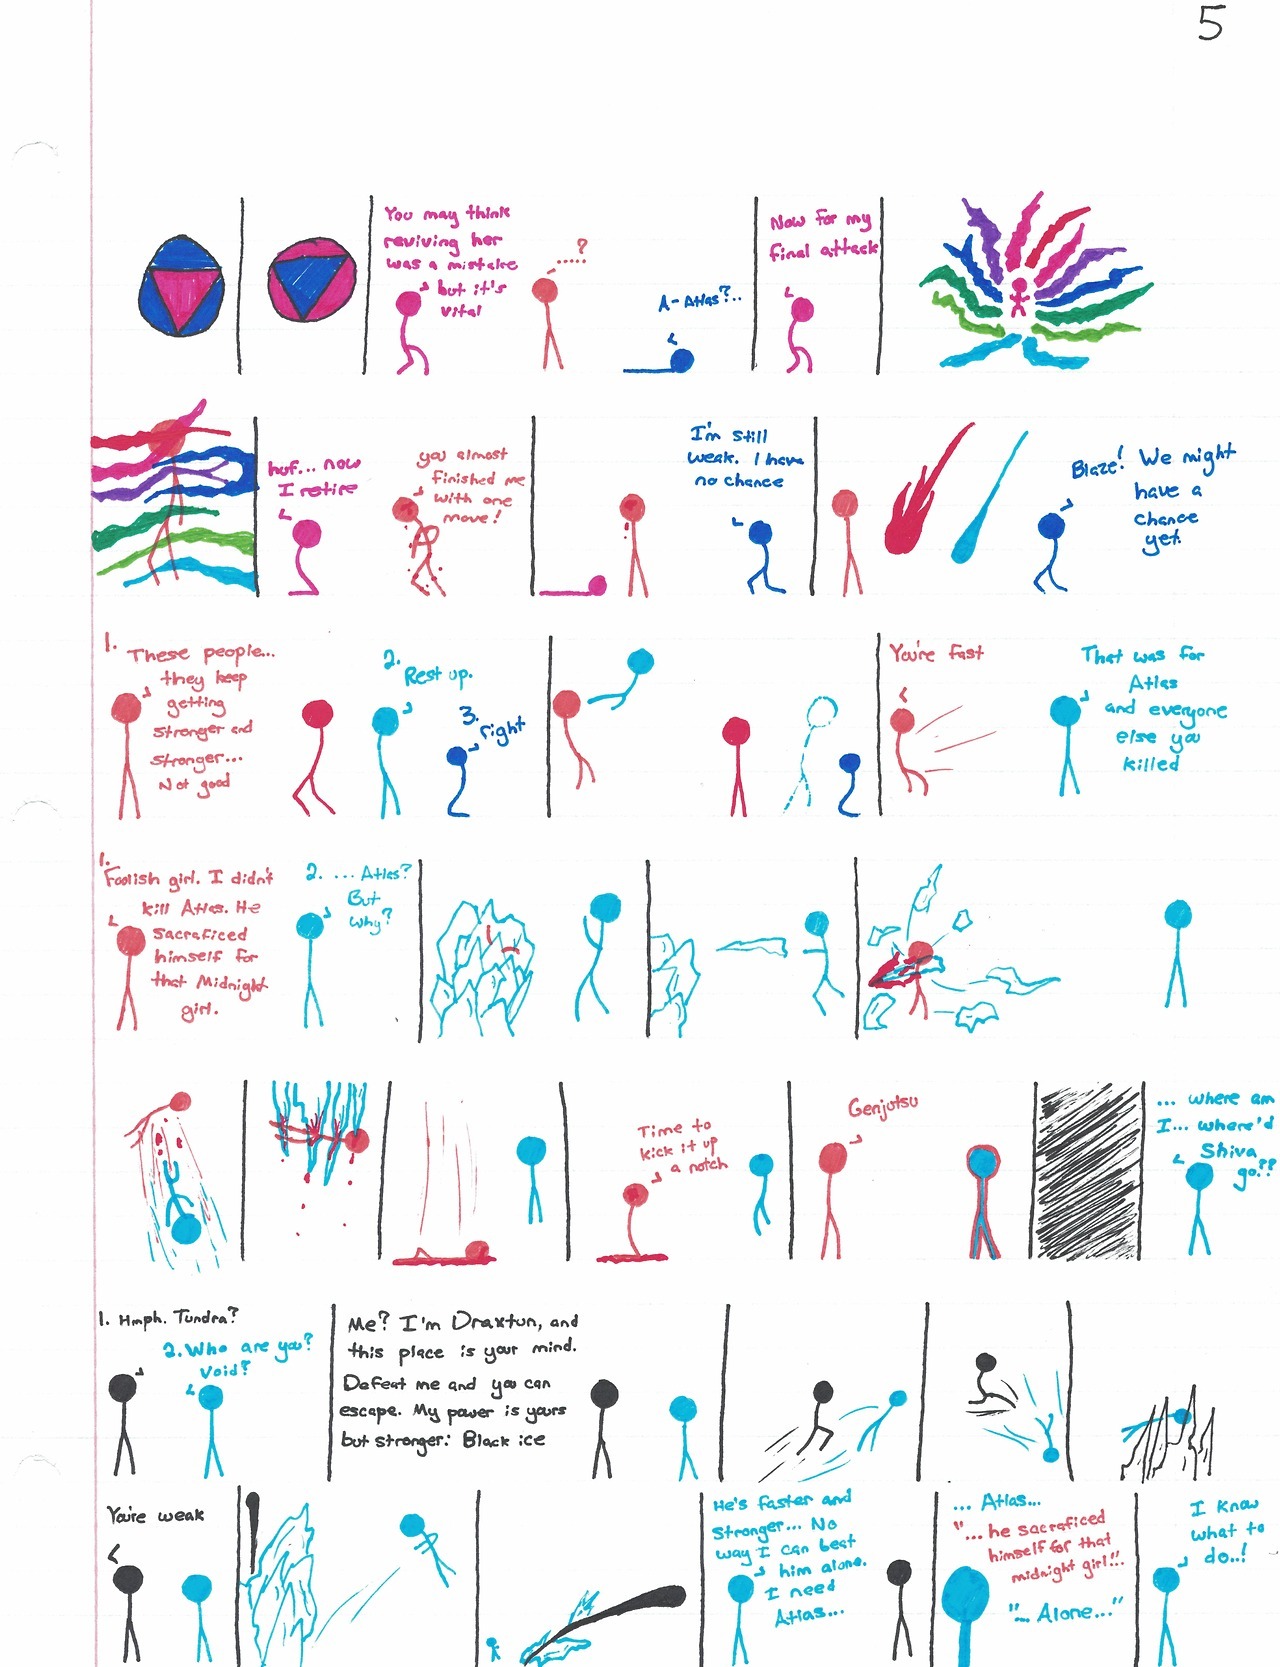 5
You may think
reviving her
was a mistake
but it's
vital
.....?
A-Atlas?..
Now for my
final attack
huf... now
I retire
you almost
finished me
with one
move!
I'm still
weak. I have
no chance
Blaze! We might
have a
chance
yet.
1. These people...
they keep
getting
stronger and
stronger...
Not good
2. Rest up.
3. right
You're fast
That was for
Atlas
and everyone
else you
killed
1. Foolish girl. I didn't
kill Atlas. He
sacraficed
himself for
that Midnight
girl.
2. ... Atlas?
But
why?
Time to
kick it up
a notch
Genjutsu
... where am
I... where'd
Shiva
go??
1. Hmph. Tundra?
2. Who are you?
Void?
Me? I'm Draxtun, and
this place is your mind.
Defeat me and you can
escape. My power is yours
but stronger: Black ice
You're weak
He's faster and
stronger... No
way I can beat
him alone.
I need
Atlas...
... Atlas...
"... he sacraficed
himself for that
midnight girl!"
"... Alone..."
I know
what to
do..!